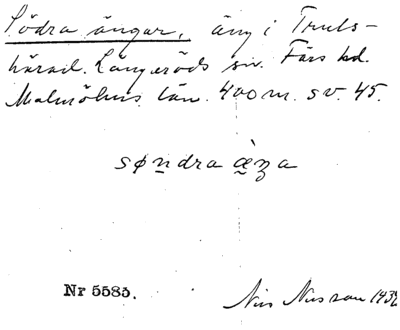 Södra ängar, äng i Truls-
härad. Långaröds sn. Färs hd.
Malmöhus län. 400 m. SV. 45.
søndra
Nr 5585.
Nils Nilsson